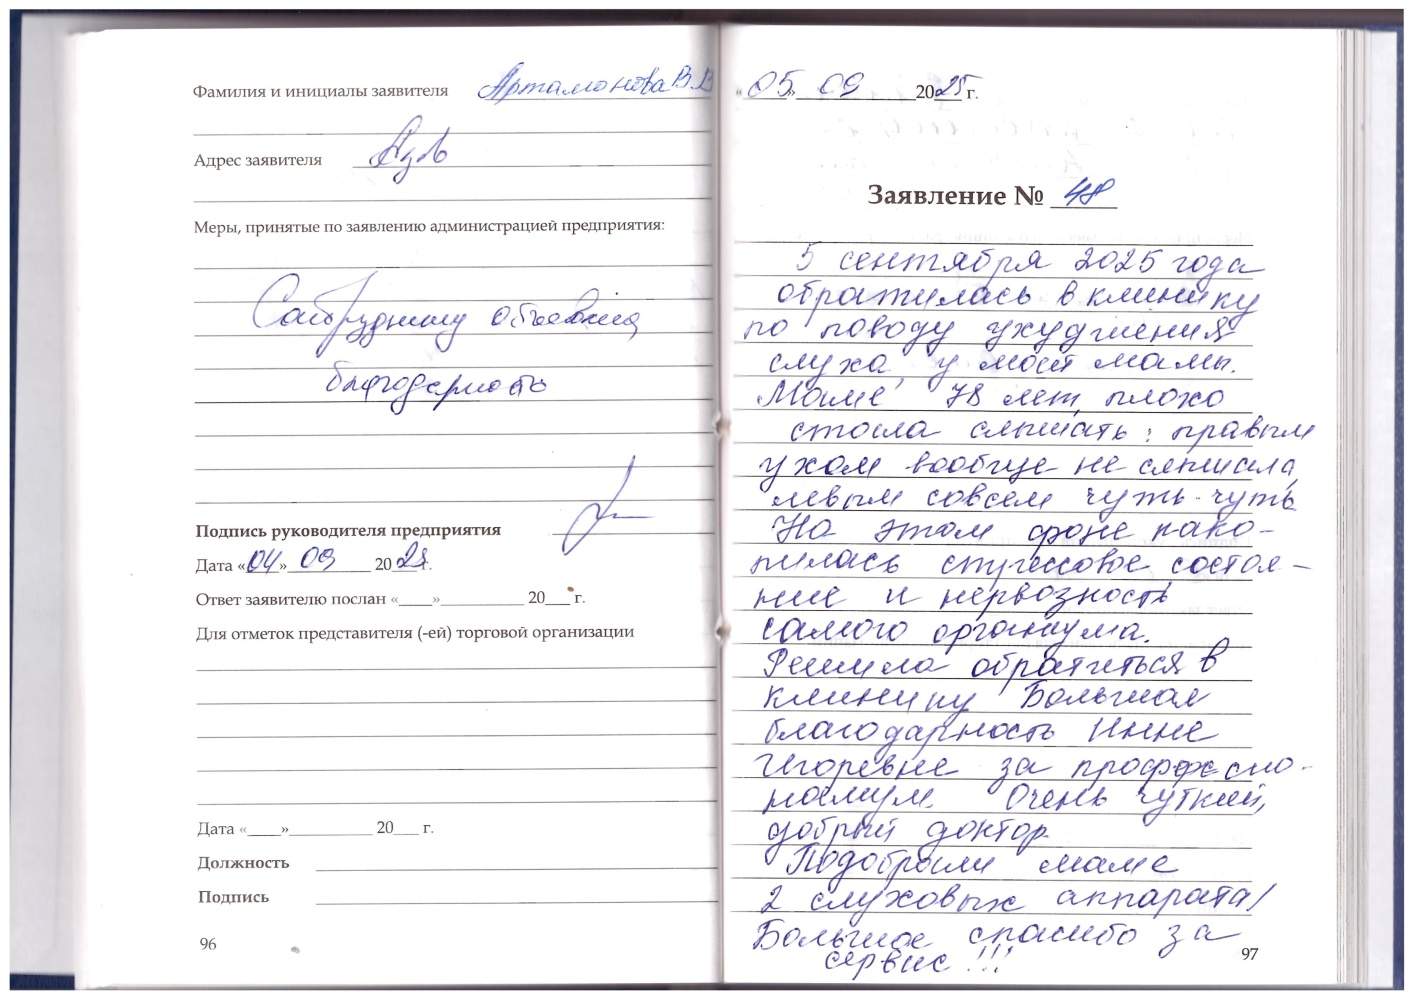 Фамилия и инициалы заявителя Артамонова В.В
Адрес заявителя Азов
Меры, принятые по заявлению администрацией предприятия:
Сотруднику объявлена
благодарность
Подпись руководителя предприятия
Дата «04» 09 2025 г.
Ответ заявителю послан «____»__________ 20___ г.
Для отметок представителя (-ей) торговой организации
Дата «____»__________ 20___ г.
Должность
Подпись
96
«05» 09 2025 г.
Заявление № 48
5 сентября 2025 года
обратилась в клинику
по поводу ухудшения
слуха у моей мамы.
Маме 78 лет, плохо
стала слышать: правым
ухом вообще не слышала,
левым совсем чуть-чуть.
На этом фоне нако-
пилась стрессовое состоя-
ние и нервозность
самого организма.
Решила обратиться в
клинику Большая
благодарность Инне
Игоревне за професио-
нализм. Очень чуткий,
добрый доктор.
Подобрали маме
2 слуховых аппарата!
Большое спасибо за
сервис!!!
97